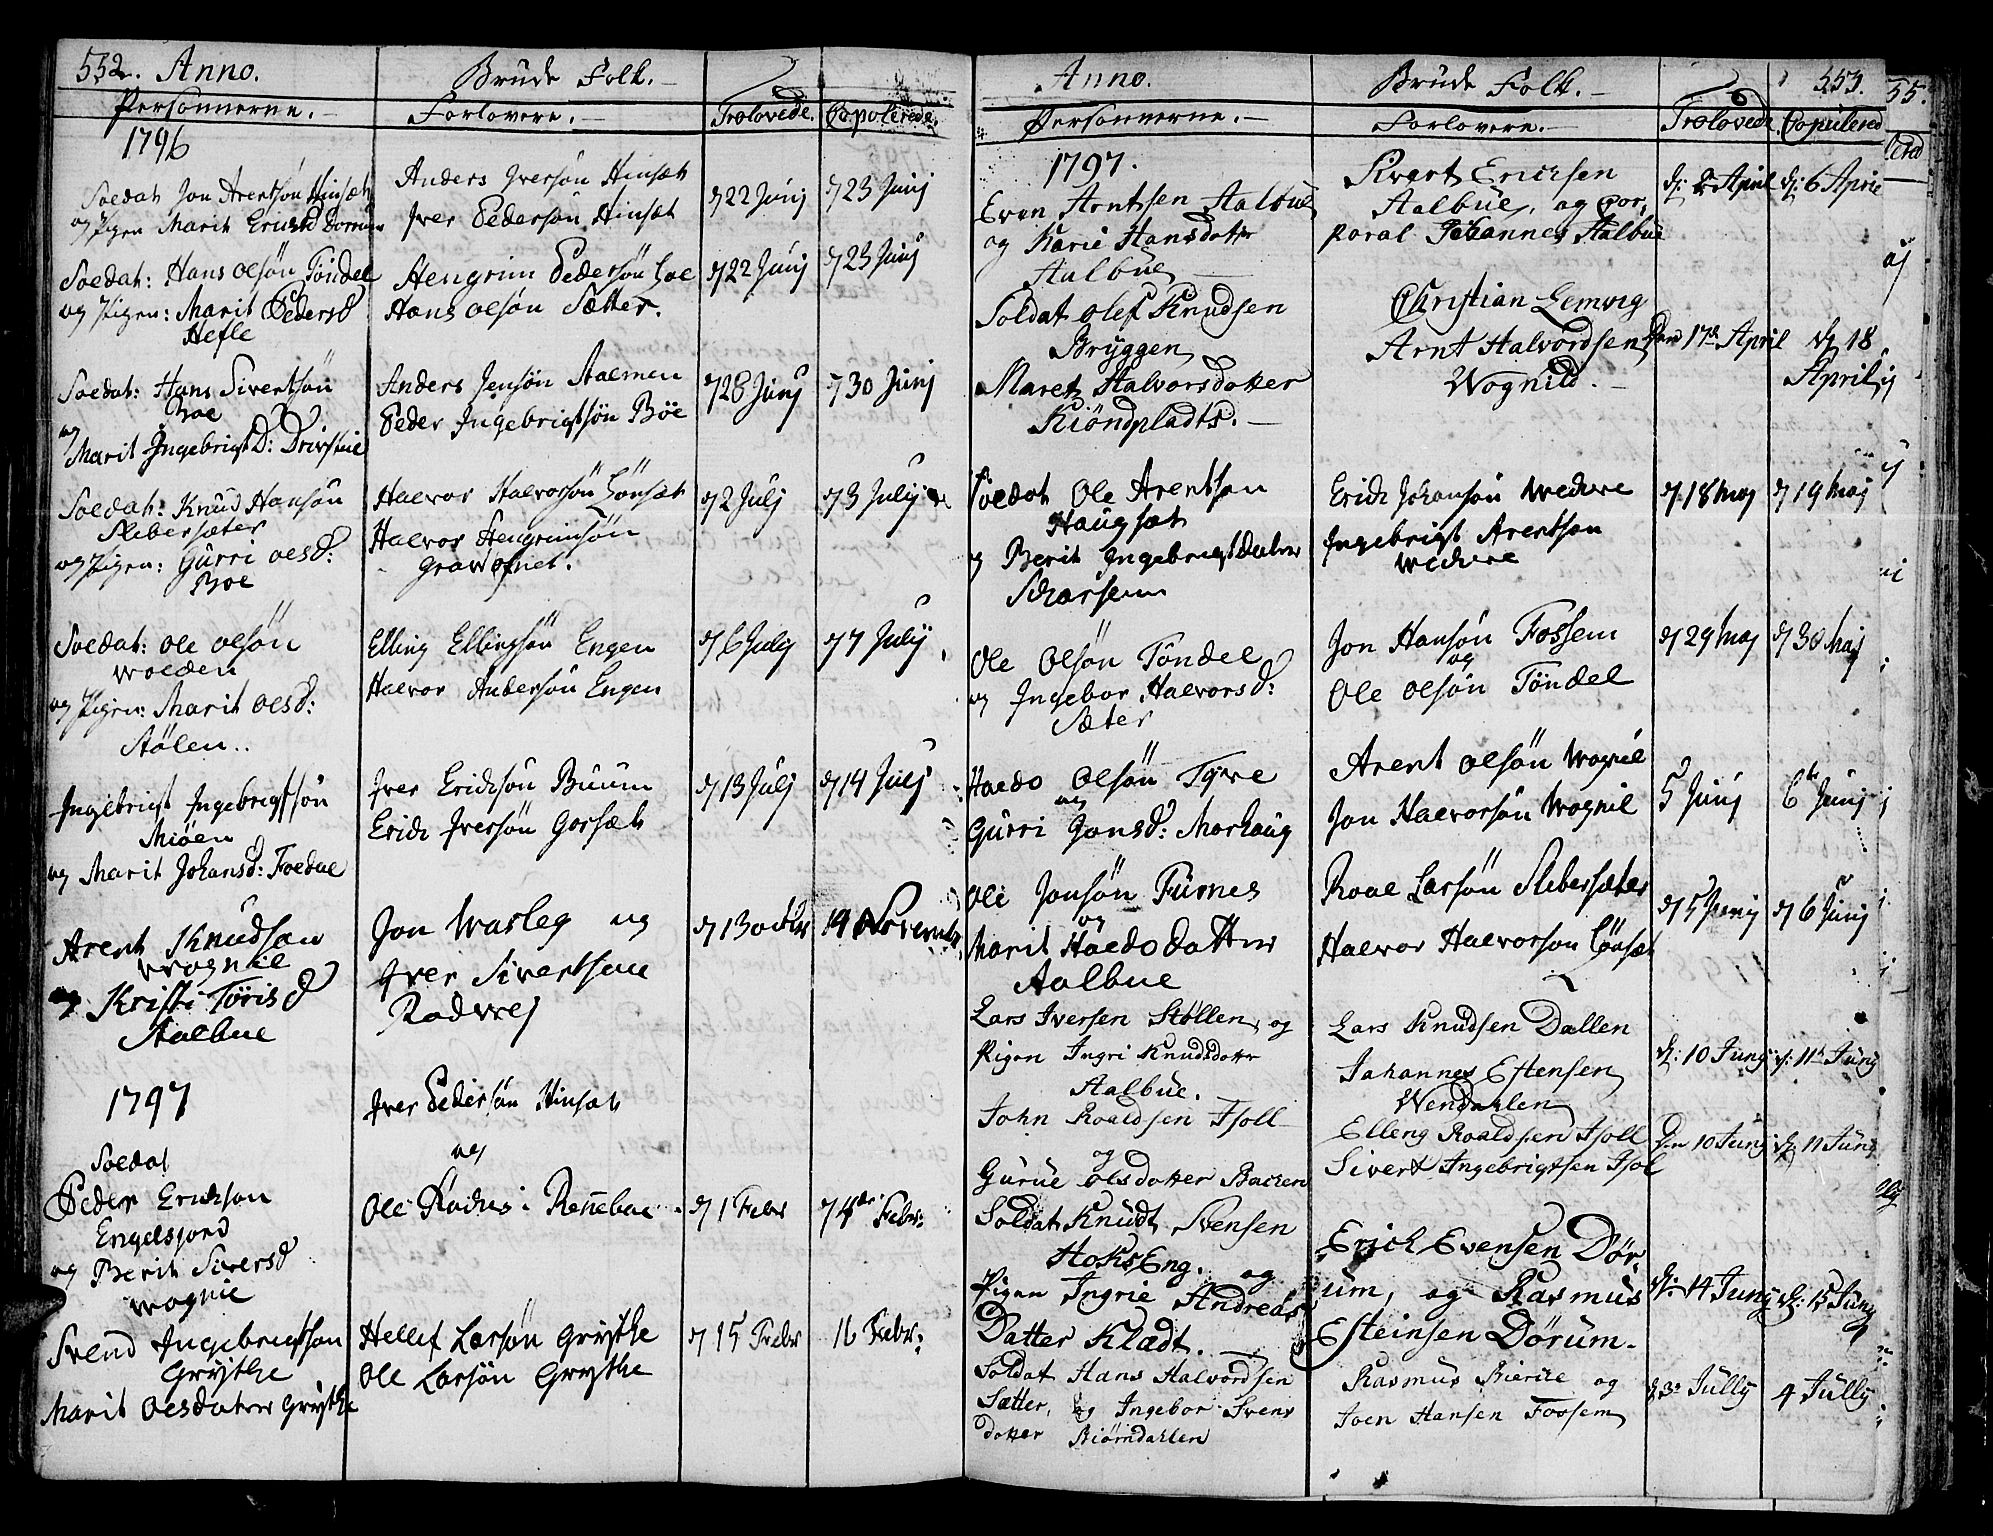 552. Anno.
Brude Folk.
Personnerne.
Forlovere.
Trolovede.
Copolerede.
1796
Soldat Jon Arentsøn Hinsæt
og Pigen Marit Erichsd Dorrum
Anders Iversøn Hinsæt
Iver Pedersøn Hinsæt
d 22 Junj
d 23 Junj
Soldat: Hans Olsøn Tøndel
og Pigen: Marit Pedersd
Hefle
Hengrim Pedersøn Loe
Hans Olsøn Sætter.
d 22 Junj
d 23 Junj
Soldat: Hans Sivertsøn
Boe
og
Marit Ingebrigtd: Drivstue
Anders Jensøn Aalmen
Peder Ingebrigtsøn Böe
d 28 Junj
d 30 Junj
Soldat: Knud Hansøn
Slebersæter
og Pigen: Gurri Olsd:
Boe
Halvor Halvorsøn Lönsæt
Halvor Hengrimsøn
Gravofnet.
d 2 Julj
d 3 Julij
Soldat: Ole Olsøn
Wolden
og Pigen: Marit Olsd:
Stølen..
Elling Ellingsøn Engen
Halvor Andersøn Engen
d 6 Julij
d 7 Julij
Ingebrigt Ingebrigtsøn
Miøen
og Marit Johansd: Foldal
Iver Erichsøn Buum
Erich Iversøn Gorsæt
d 13 Julj
d 14 Julj
Arent Knudson
Wognil
og Kristi Törisd
Aalbue
Jon Warleg og
Iver Sivertsen
Rodvej
d 13 octbr
14 Novembr
1797
Soldat
Peder Erichson
Engelsjord
og Berit Siversd
Wognil
Iver Pedersøn Hinsæt
og
Ole Rodus i Rennebue
d 1 Febr
d 4de Febr:
Svend Ingebrigtson
Grøthe
Marit Olsdatter Grøthe
Hellef Larsøn Grøthe
Ole Larsön Grøthe
d 15 Febr
16 Febr:
Anno.
Brude Folk.
553.
Personnerne.
Forlovere.
Trolovede
Copulered
1797.
Even Arntsen Aalbue
og Karie Hansdatter
Aalbue
Sivert Erichsen
Aalbue, og Cor-
poral Johannes Aalbue
d: 2 April
d: 6 April
Soldat Olef Knudsen
Bryggen
Maret Halvorsdotter
Kiöndpladts.
Christian Lemvig
Arnt Halvordsen
Wognild.
Den 17de April
d 18
April
Soldat Ole Arentson
Haugsæt
og Berit Ingebrigtdatter
Scharsem
Erich Johansøn Wedere
Ingebrigt Arentson
Wedere
d 18 Maj
d 19 Maj
Ole Olsön Töndel
og Ingebor Halvorsd:
Sæter
Jon Hansøn Fossem
og
Ole Olsön Töndel
d 29 Maj
d 30 Maj
Haldo Olsön Tyve
og
Gurri Jonsd: Morhaug
Arent Olsön Wognil
Jon Halvorsön Wognil
5 Junj
6te Junj
Ole Jonsön Furnes
og
Marit Haldodatter
Aalbue
Roal Larsön Slebersæter
Halvor Halvorson Lönsæt
d 5 Junij
d 6 Junj
Lars Iversen Støllen, og
Pigen Ingri Knudsdotter
Aalbue.
Lars Knudsen Dallen
Johannes Estensen
Wendahlen
d: 10 Junij
d: 11te Junij
John Roaldsen Fjoll
og
Gurue Olsdotter Bachen
Elleng Roaldsen Fjoll
Sivert Ingebrigtsen Fjol
Den 10 Junij
d 11 Junij
Soldat Knudt Svensen
HoksEng. og
Pigen Ingrie Andreas
Datter Kladt.
Erich Evensen Dør-
um, og Rasmus
Esteinsen Dörum.
d: 14 Junij
d: 15 Junij
Soldat Hans Halvordsen
Sætter, og Ingebor Svens
dotter Biørndahlen
Rasmus Bierche og
Joen Hansen Fossem
d 3de Jully
4 Jully